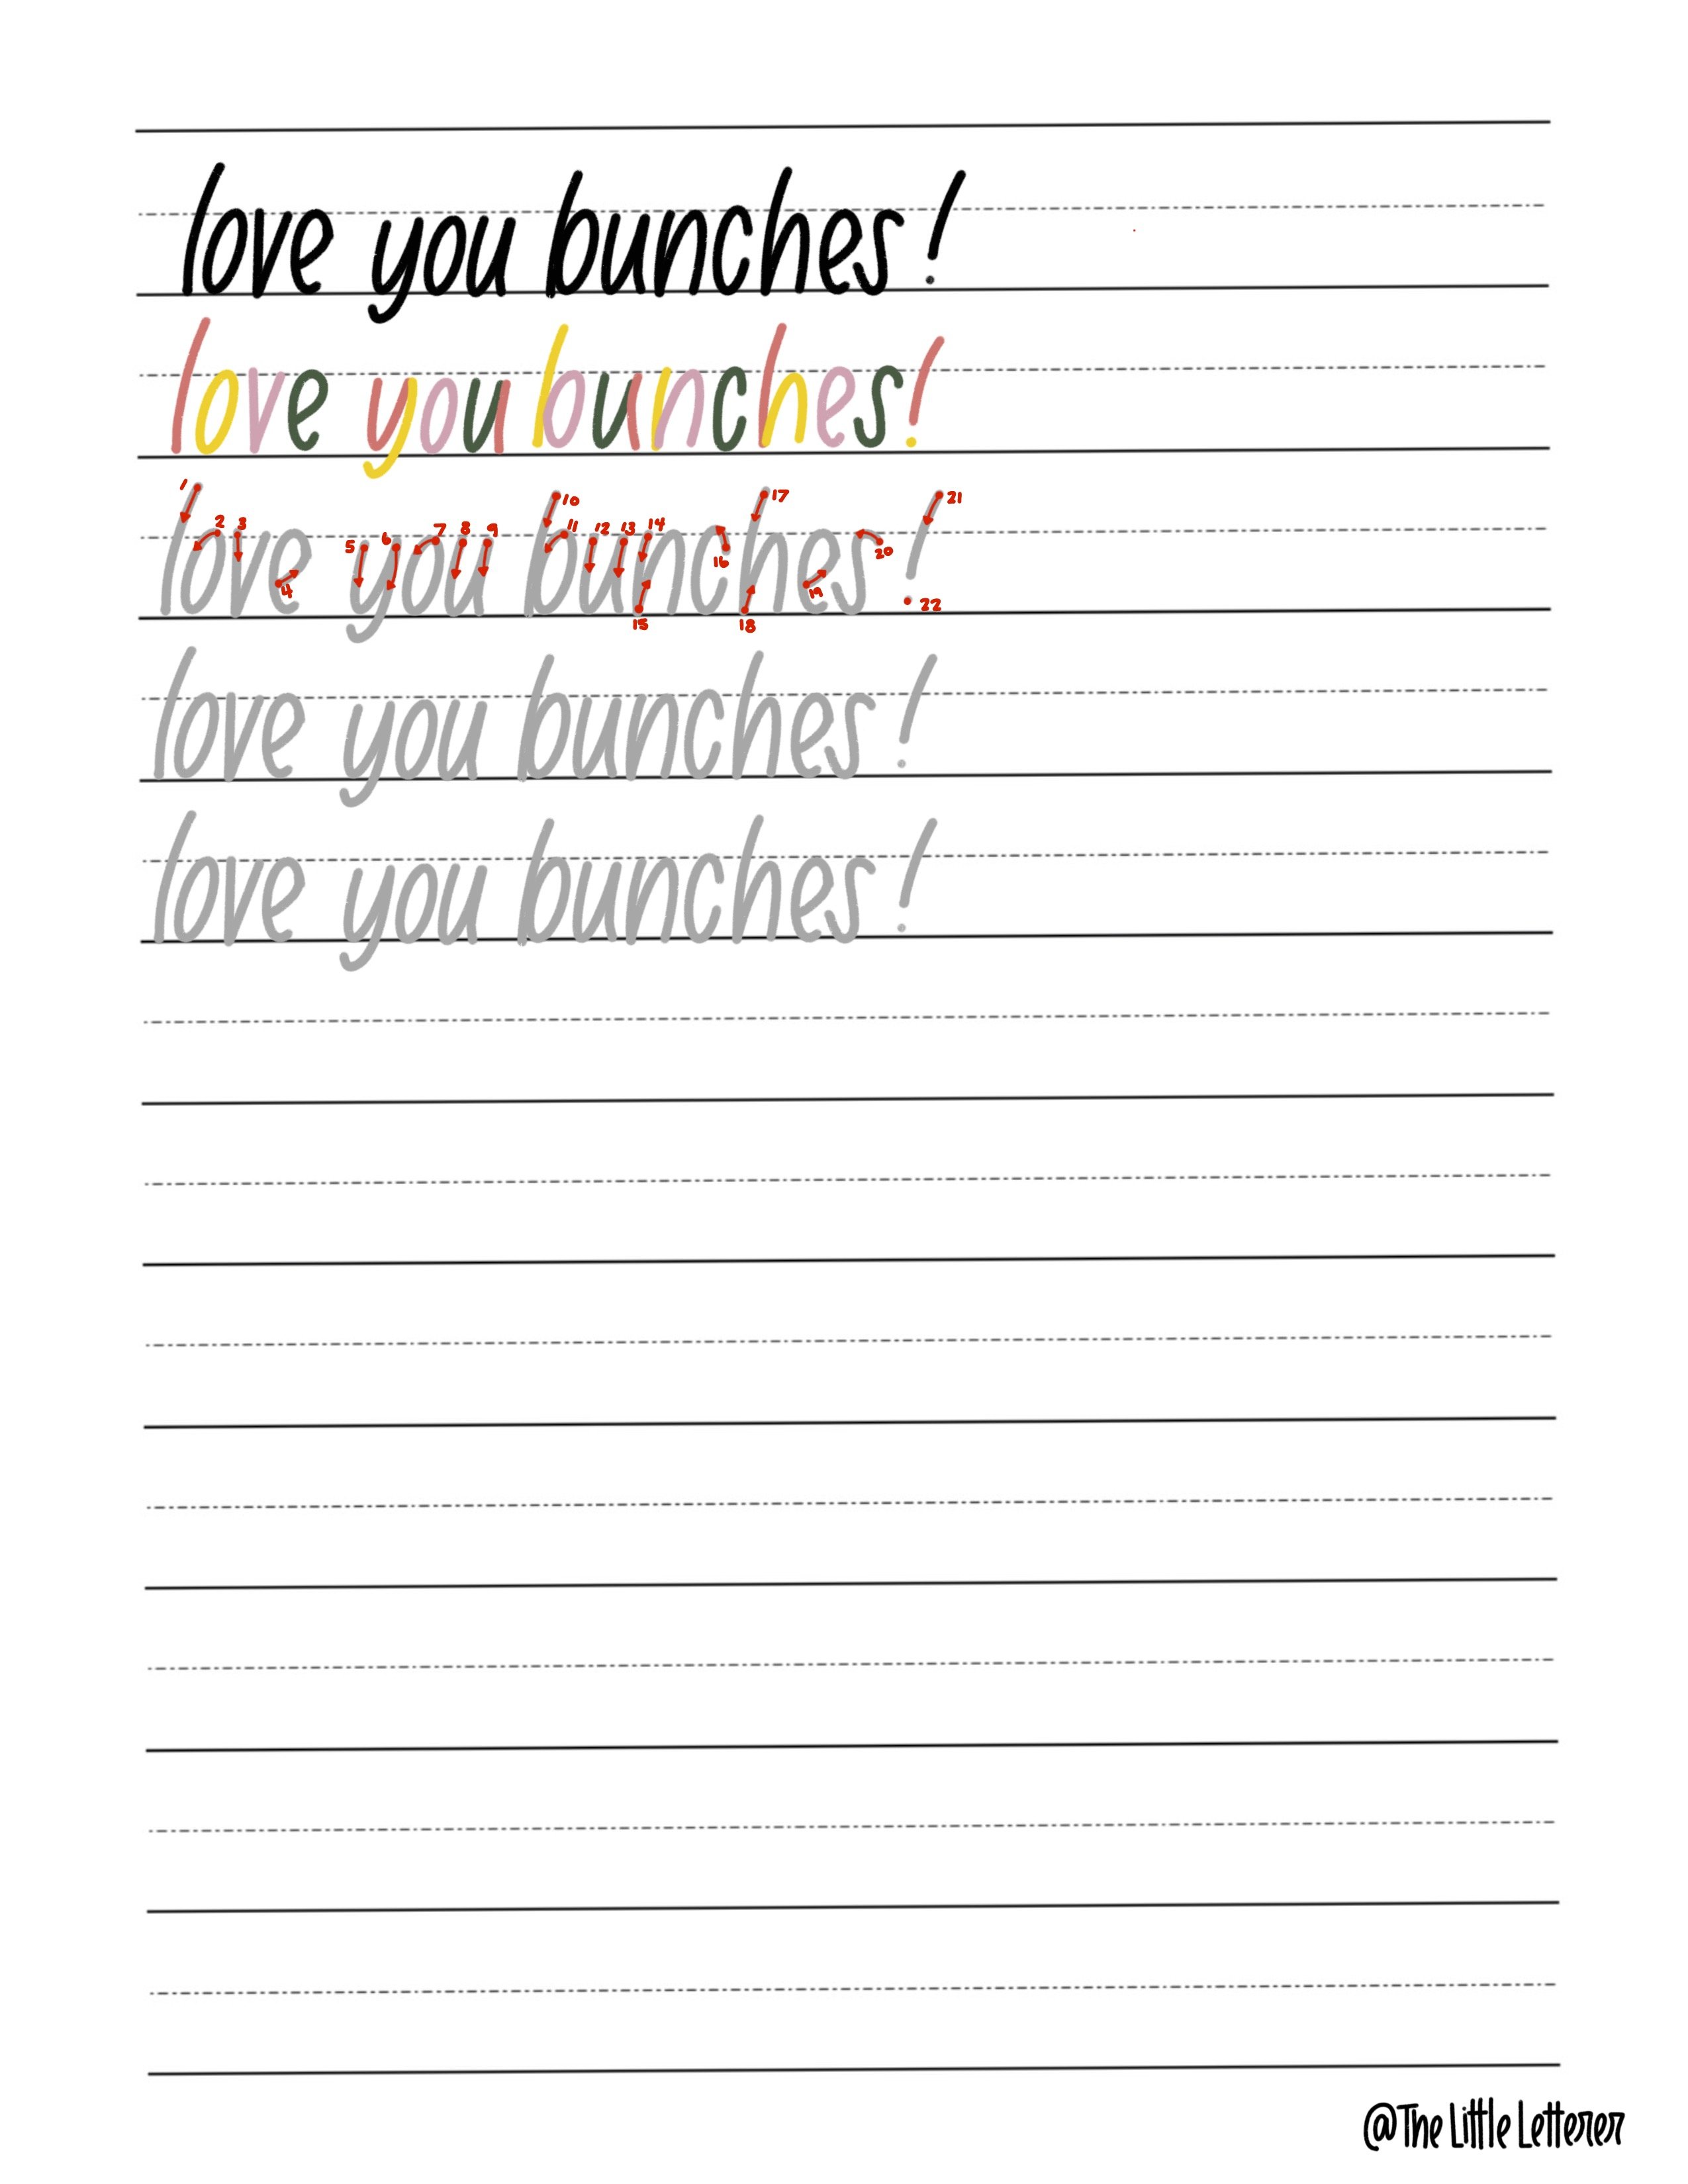 love you bunches!
love you bunches!
1 2 3 4 5 6 7 8 9 10 11 12 13 14 15 16 17 18 19 20 21 22
love you bunches!
love you bunches!
love you bunches!
@The Little Letterer